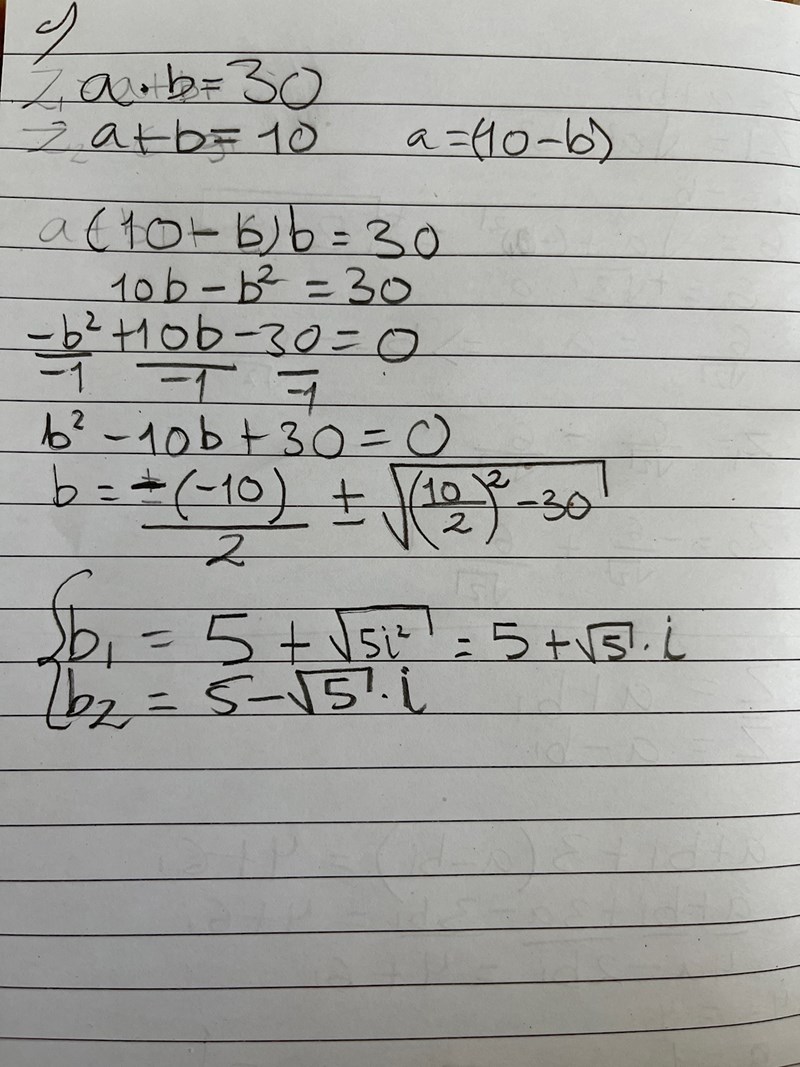 a·b=30
a+b=10 a=(10-b)
(10-b)b=30
10b-b²=30
-b²/-1 +10b/-1 -30/-1 =0
b²-10b+30=0
b=-(-10)/2 ± √((10/2)²-30)
b₁ = 5+√5i² = 5+√5·i
b₂ = 5-√5·i